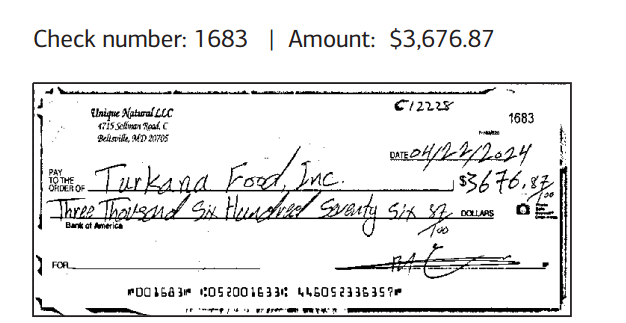 Check number: 1683 | Amount: $3,676.87
C12228
Unique Natural LLC
1683
4715 Sellman Road, C
Beltsville, MD 20705
DATE 04/22/2024
PAY TO THE ORDER OF Turkana Food, Inc. $3676.87/100
Three Thousand Six Hundred Seventy Six 87/100 DOLLARS
Bank of America
FOR
⑈001683⑈ ⑆052001633⑆ 446052336357⑈